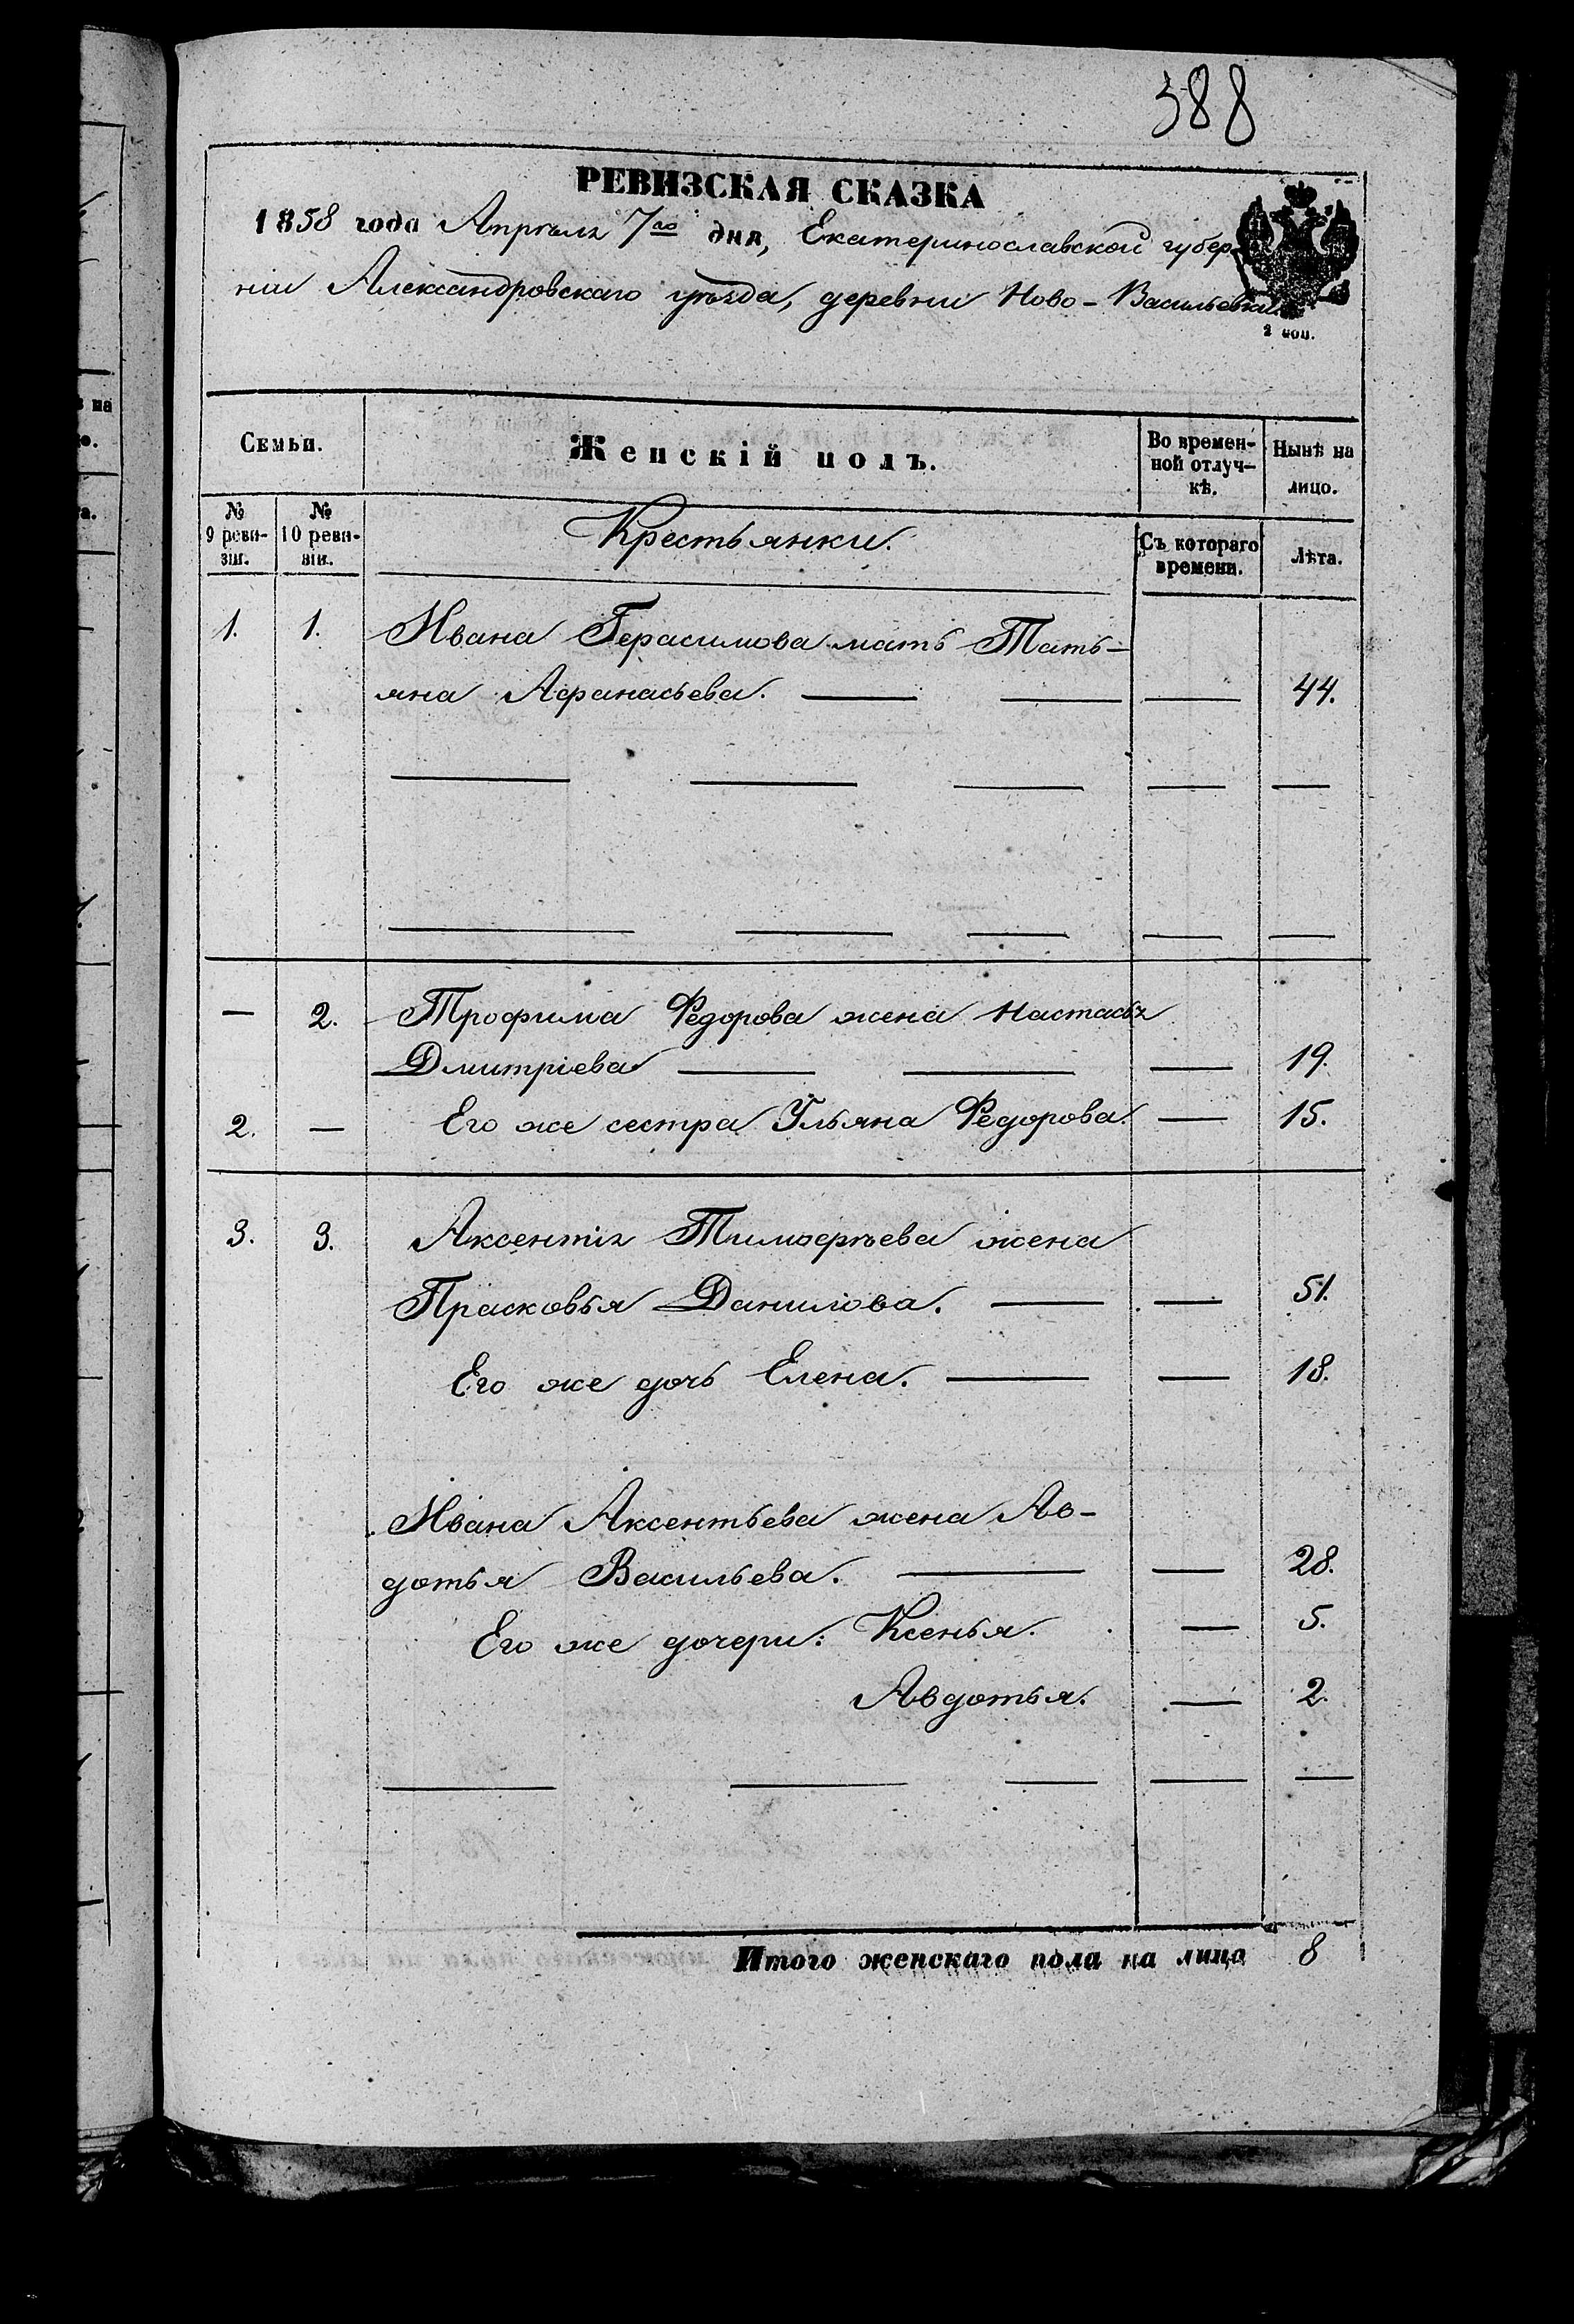 388
РЕВИЗСКАЯ СКАЗКА
1858 года Апрѣля 7го дня, Екатеринославской губер-
ніи Александровскаго уѣзда, деревни Ново-Васильевки.
2 коп.
Семьи. Женскій полъ. Во времен-ной отлуч-кѣ. Нынѣ на лицо.
№ 9 реви-зіи. № 10 реви-зіи. Крестьянки. Съ котораго времени. Лѣта.
1. 1. Ивана Герасимова мать Тать-
яна Афанасьева. — — — 44.
— — — — —
— — — — —
— 2. Трофима Федорова жена Настасья
Дмитріева — — — 19.
2. — Его же сестра Ульяна Федорова. — 15.
3. 3. Аксентія Тимофѣева жена
Прасковья Данилова. — — 51.
Его же дочь Елена. — — 18.
Ивана Аксентьева жена Ав-
дотья Васильева. — — 28.
Его же дочери: Ксенья. — 5.
Авдотья. — 2.
— — — — —
Итого женскаго пола на лицо 8